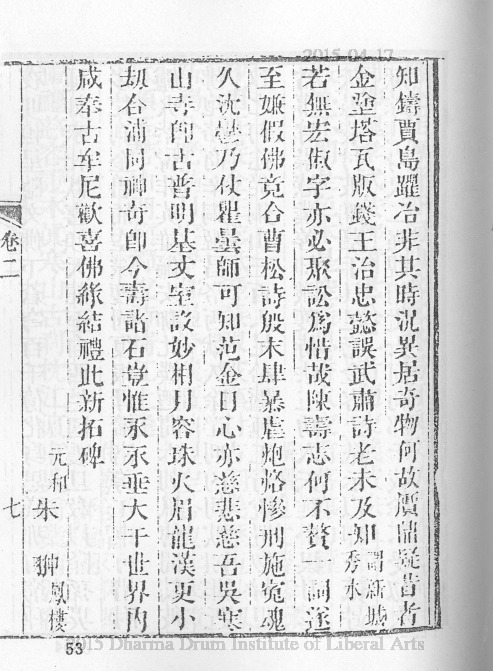 2015-04-17
知鑄賈島躍冶非其時況異居奇物何故贋鼎疑昔者
金塗塔瓦版錢王治忠懿誤武肅詩老未及知謂新城秀水
若無宏俶字亦必聚訟爲惜哉陳壽志何不贅一詞遂
至嫌假佛竟合曹松詩殷末肆暴虐炮烙慘刑施冤魂
久沈墨乃仗瞿曇師可知范金日心亦慈悲慈吾吳寒
山寺卽古普明基丈室設妙相月容珠火眉龍漢更小
劫合浦同神奇卽今壽諸石堂惟永永垂大千世界內
咸奉古牟尼歡喜佛緣結禮此新拓碑
元和朱 翀鳳樓
卷二
七
53
2015 Dharma Drum Institute of Liberal Arts